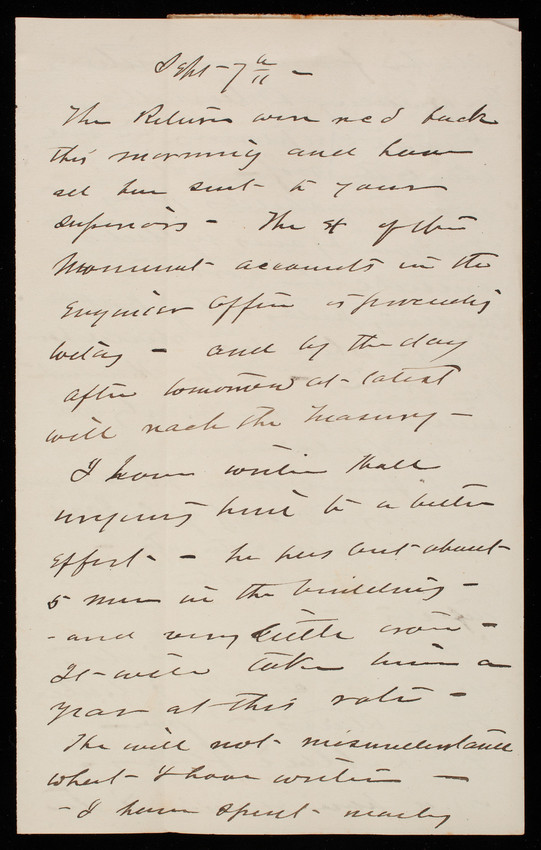 Sept - 7th -
The Returns were rec'd back
this morning and have
all been sent to your
superiors - The of the
Monument accounts in the
Engineer Office is proceeding
today - and by the day
after tomorrow at - latest
will reach the Treasury -
I have written Hall
urging him to a better
effort - - he has but about
5 men in the building -
- and very little iron -
It will take him a
year at this rate -
He will not misunderstand
what I have written -
- I have spent nearly